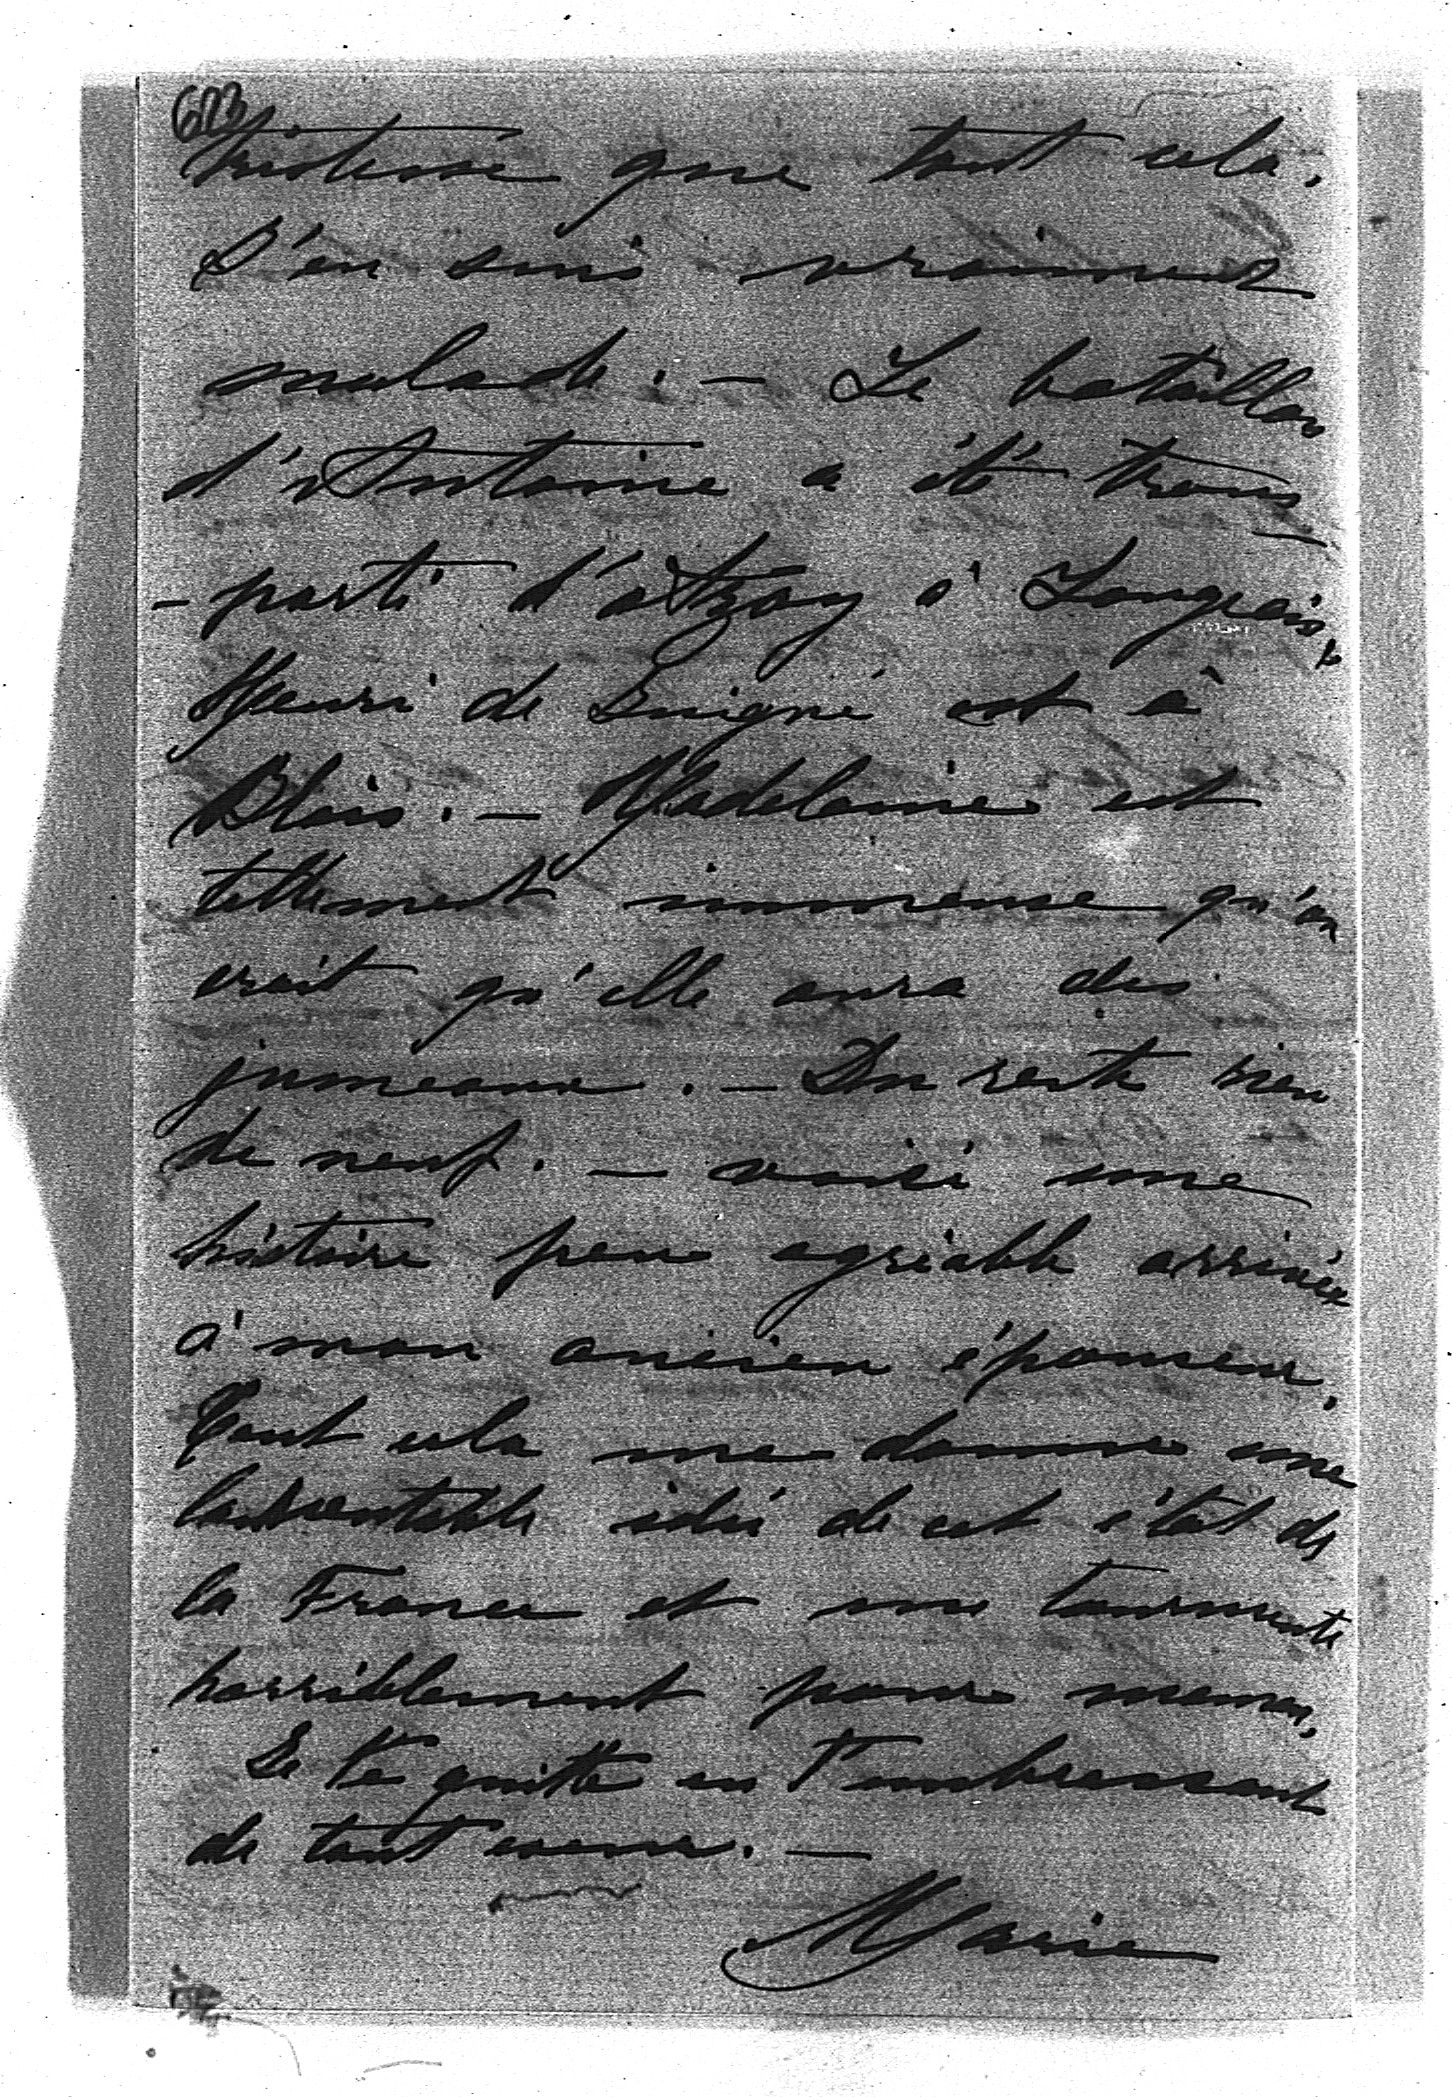 673
tristesse que tout cela.
J'en suis vraiment
malade. – Le bataillon
d'Antoine a été trans
- porté d'Azay à Langeais,
Henri de est à
Blois. – Madeleine est
tellement immense qu'on
croit qu'elle aura des
jumeaux. – Du reste rien
de neuf. – voici une
histoire peu agréable arrivée
à mon ancien épouseur.
Tout cela me donne une
lamentable idée de cet état de
la France et me tourmente
horriblement pour
Je te quitte en t'embrassant
de tout coeur. –
Marie